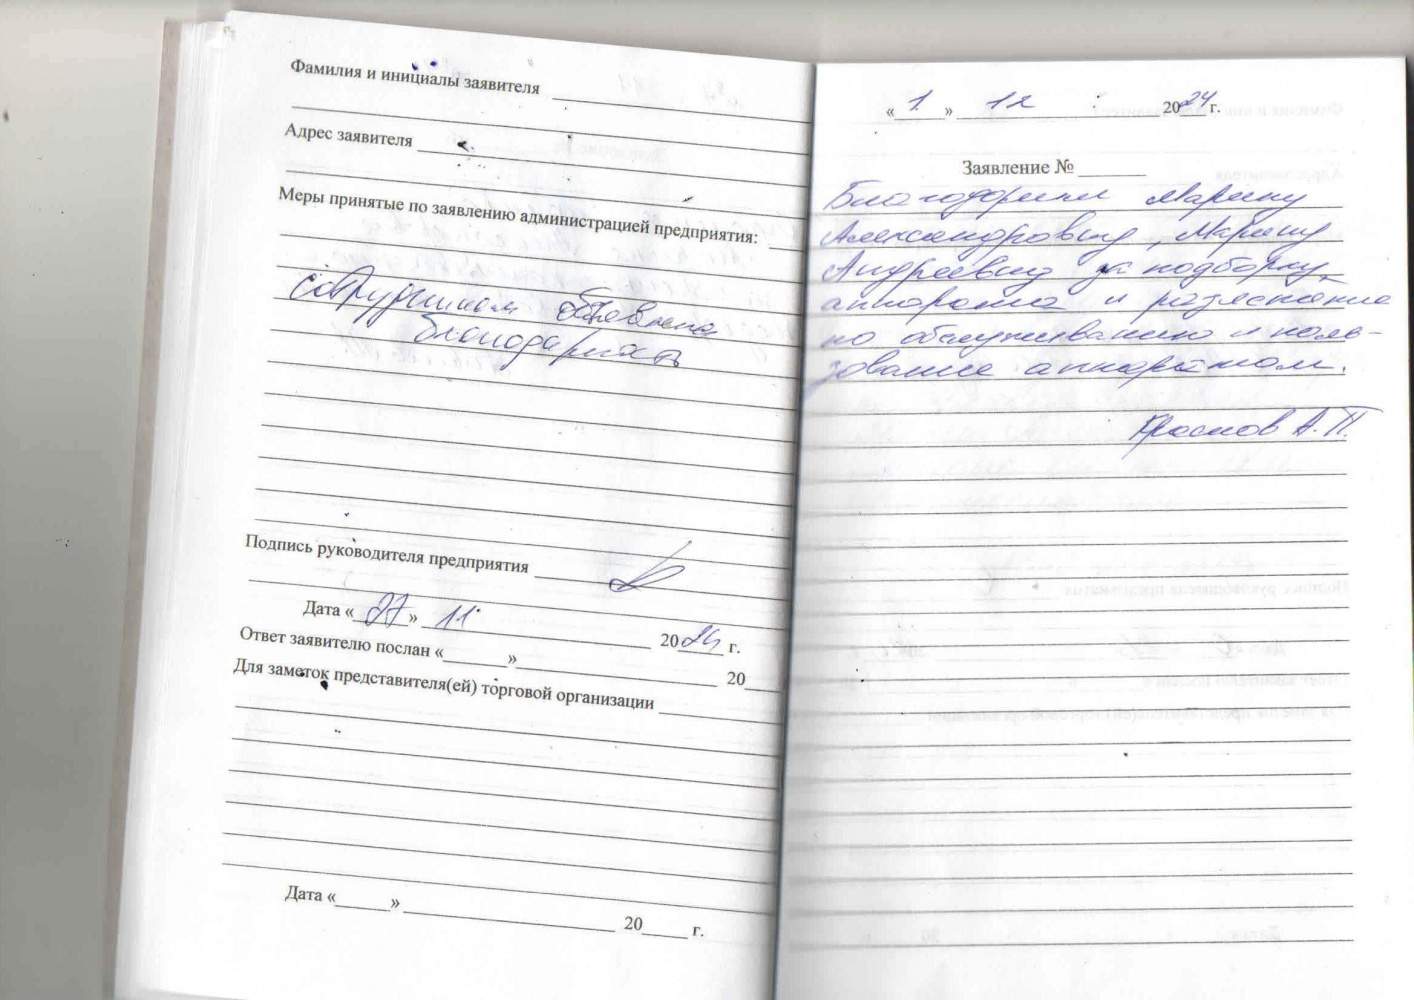 Фамилия и инициалы заявителя
Адрес заявителя
Меры принятые по заявлению администрацией предприятия:
сотрудникам объявлена
благодарность
Подпись руководителя предприятия
Дата «27» 11 2024 г.
Ответ заявителю послан «______» 20
Для заметок представителя(ей) торговой организации
Дата «______» 20_____ г.
«1» 12 2024 г.
Заявление № _______
Благодарим Марину
Александровну, Марину
Андреевну за подборку
аппарата и разяснение
по обслуживанию и поль-
зование аппаратом.
Краснов А.П.